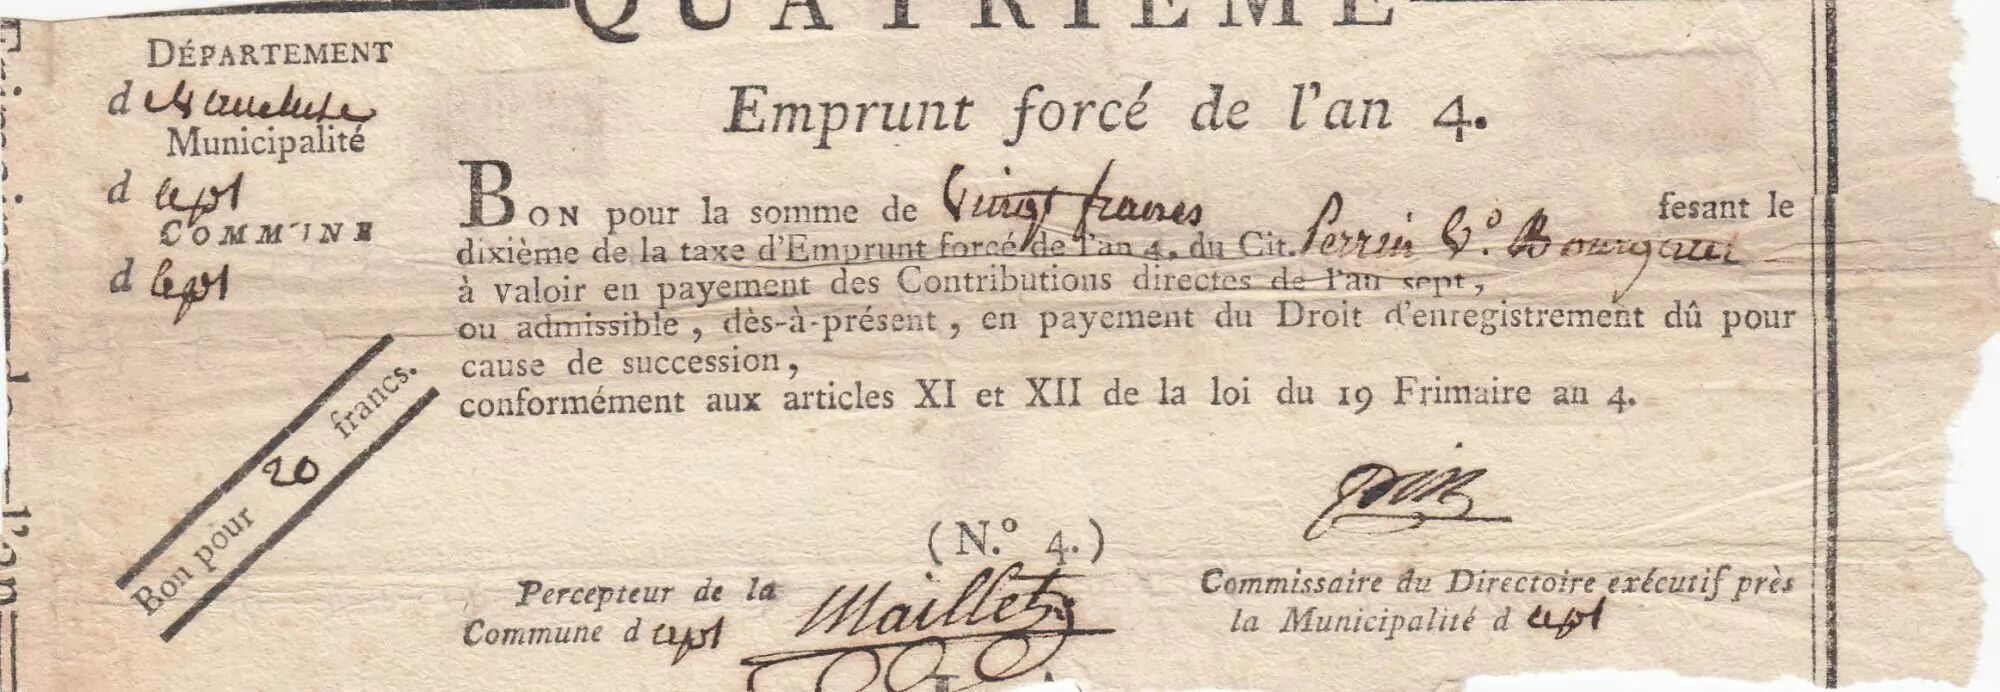 QUATRIÈME
DÉPARTEMENT
d
Municipalité
d'apt
COMMUNE
d'apt
Emprunt forcé de l'an 4.
BON pour la somme de Vingt francs fesant le
dixième de la taxe d'Emprunt forcé de l'an 4, du Cit. Perrin
à valoir en payement des Contributions directes de l'an sept,
ou admissible, dès-à-présent, en payement du Droit d'enregistrement dû pour
cause de succession,
conformément aux articles XI et XII de la loi du 19 Frimaire an 4.
Bon pour 20 francs.
(N.º 4.)
Percepteur de la
Commune d'apt
Maillet
Commissaire du Directoire exécutif près
la Municipalité d'apt